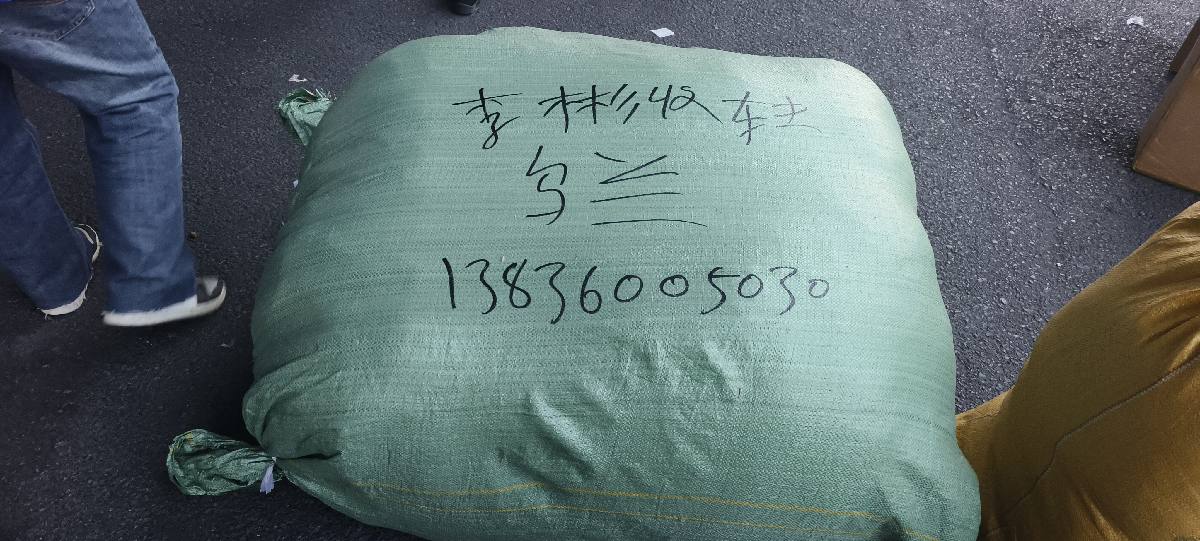 李彬收 转
乌兰
13836005030